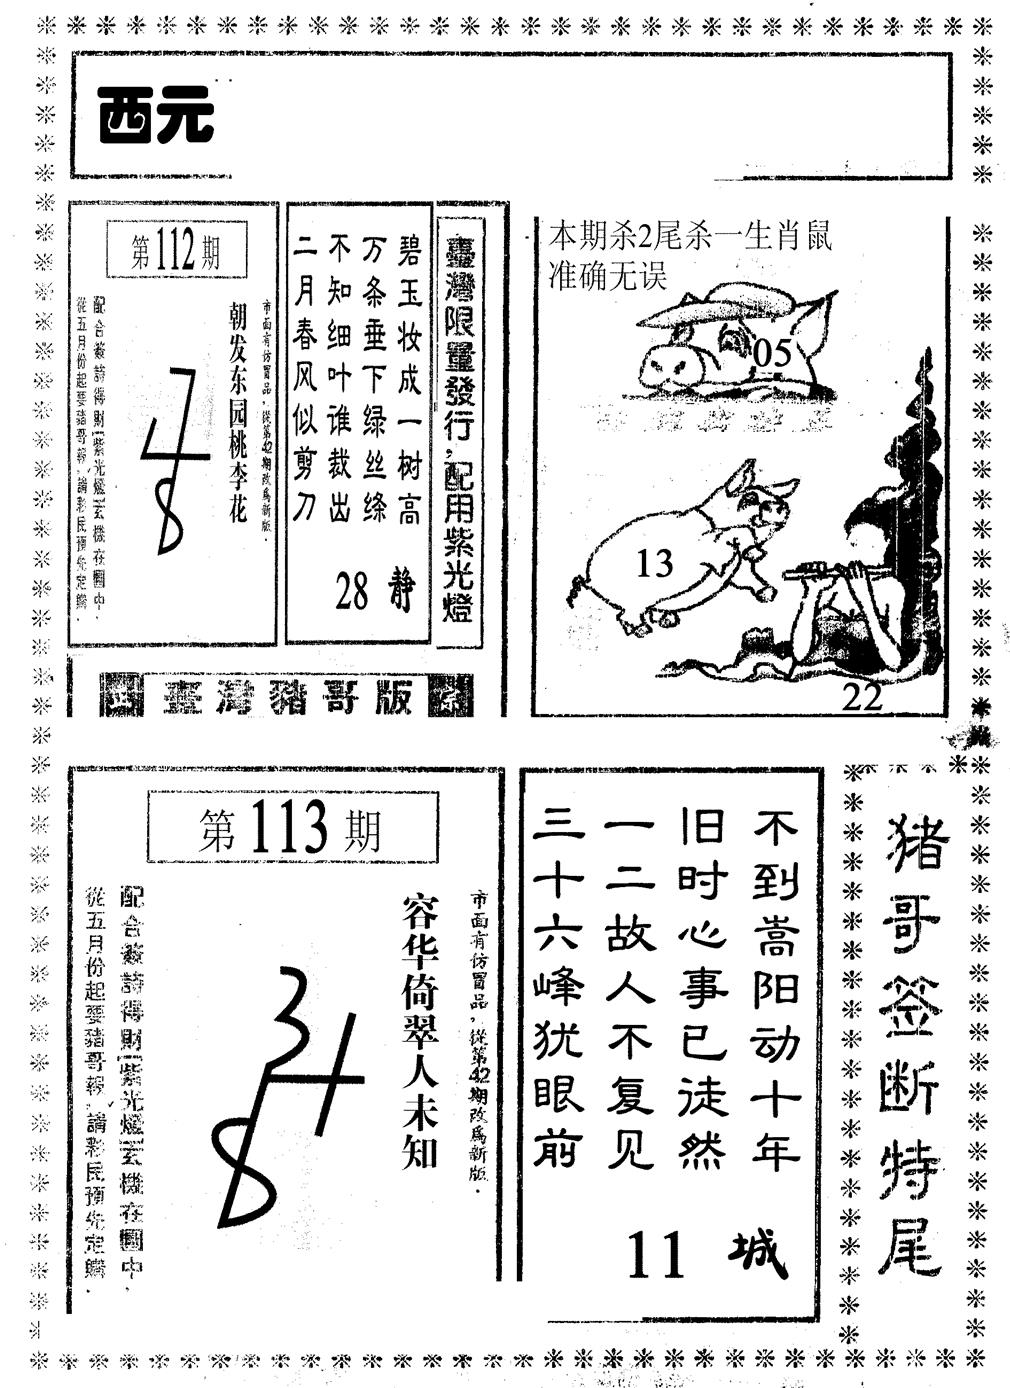 西元
第112期
市面有仿冒品，從第42期改爲新版．
朝发东园桃李花
748
配合簽詩得財紫光燈玄機在圖中．
從五月份起要豬哥報．請彩民預先定購．
碧玉妆成一树高
万条垂下绿丝绦
不知细叶谁裁出
二月春风似剪刀
28 静
臺灣限量發行，配用紫光燈
臺灣豬哥版
本期杀2尾杀一生肖鼠
准确无误
05
13
22
第113期
市面有仿冒品，從第42期改爲新版．
容华倚翠人未知
348
配合簽詩得財紫光燈玄機在圖中．
從五月份起要豬哥報．請彩民預先定購．
不到嵩阳动十年
旧时心事已徒然
一二故人不复见
三十六峰犹眼前
11 城
猪哥签断特尾